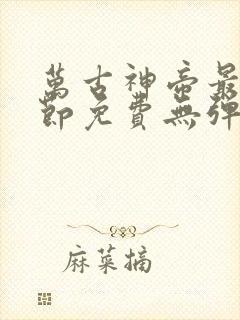 萬古神帝最
節免費無彈
麻菜摘